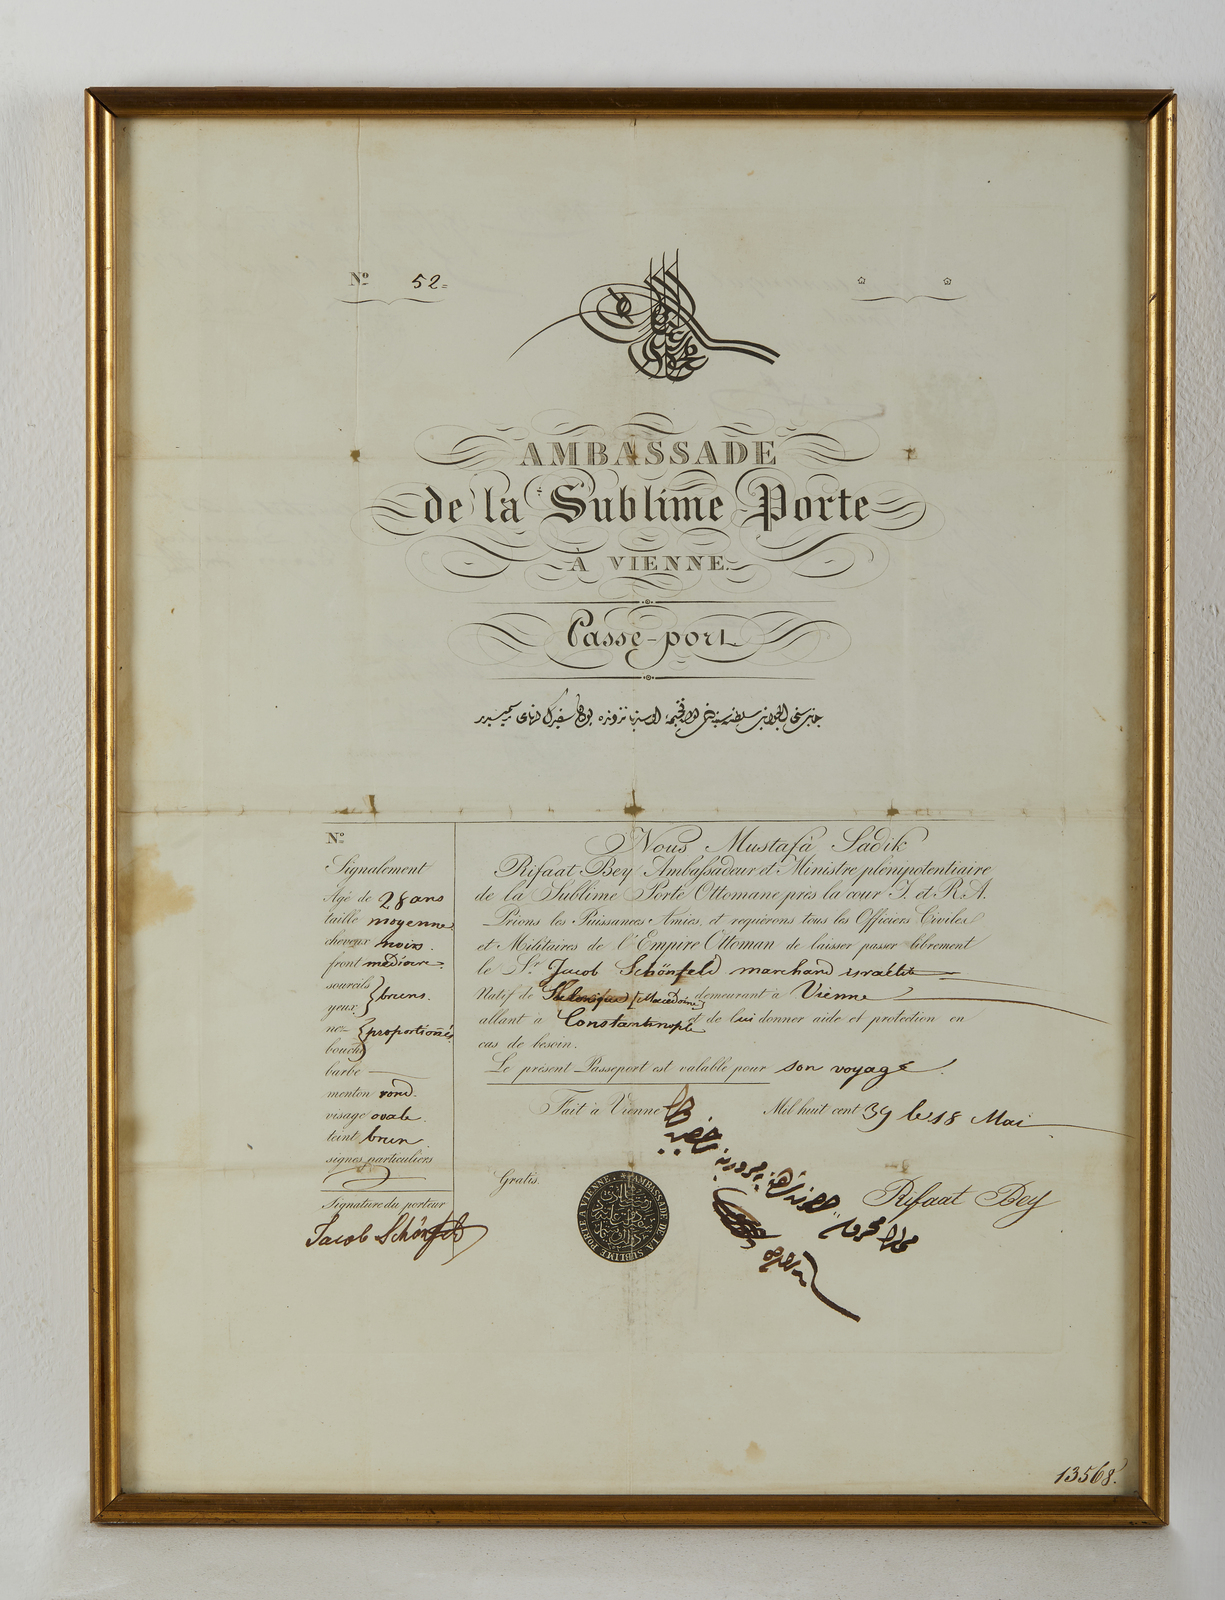 Nº 52=
AMBASSADE
de la Sublime Porte
À VIENNE.
Passe-port
Nº
Signalement
Agé de 28 ans
taille moyenne
cheveux noirs.
front mediocre
sourcils
yeux } bruns.
nez { proportionés
bouche
barbe
menton rond.
visage ovale.
teint brun.
signes particuliers
Signature du porteur
Jacob Schönfeld
Nous Mustafà Sadik
Rifaat Bey Ambassadeur et Ministre plénipotentiaire
de la Sublime Porte Ottomane près la cour I. et R. A.
Prions les Puissances Amies, et requérons tous les Officiers Civiles
et Militaires de l'Empire Ottoman de laisser passer librement
le Sr. Jacob Schönfeld marchand israélite
Natif de (Macédoine) demeurant à Vienne
allant à Constantinople et de lui donner aide et protection en
cas de besoin.
Le présent Passeport est valable pour son voyage.
Fait à Vienne Mil huit cent 39 le 18 Mai
Gratis.
AMBASSADE DE LA SUBLIME PORTE A VIENNE
Rifaat Bey
13568.